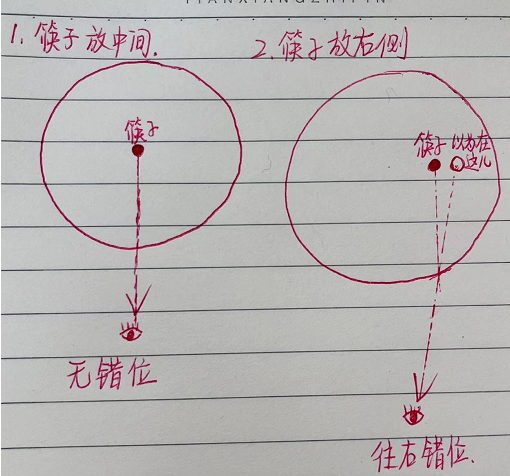 1. 筷子放中间.
2. 筷子放右侧
筷子
筷子
以为在
这儿
无错位
往右错位.